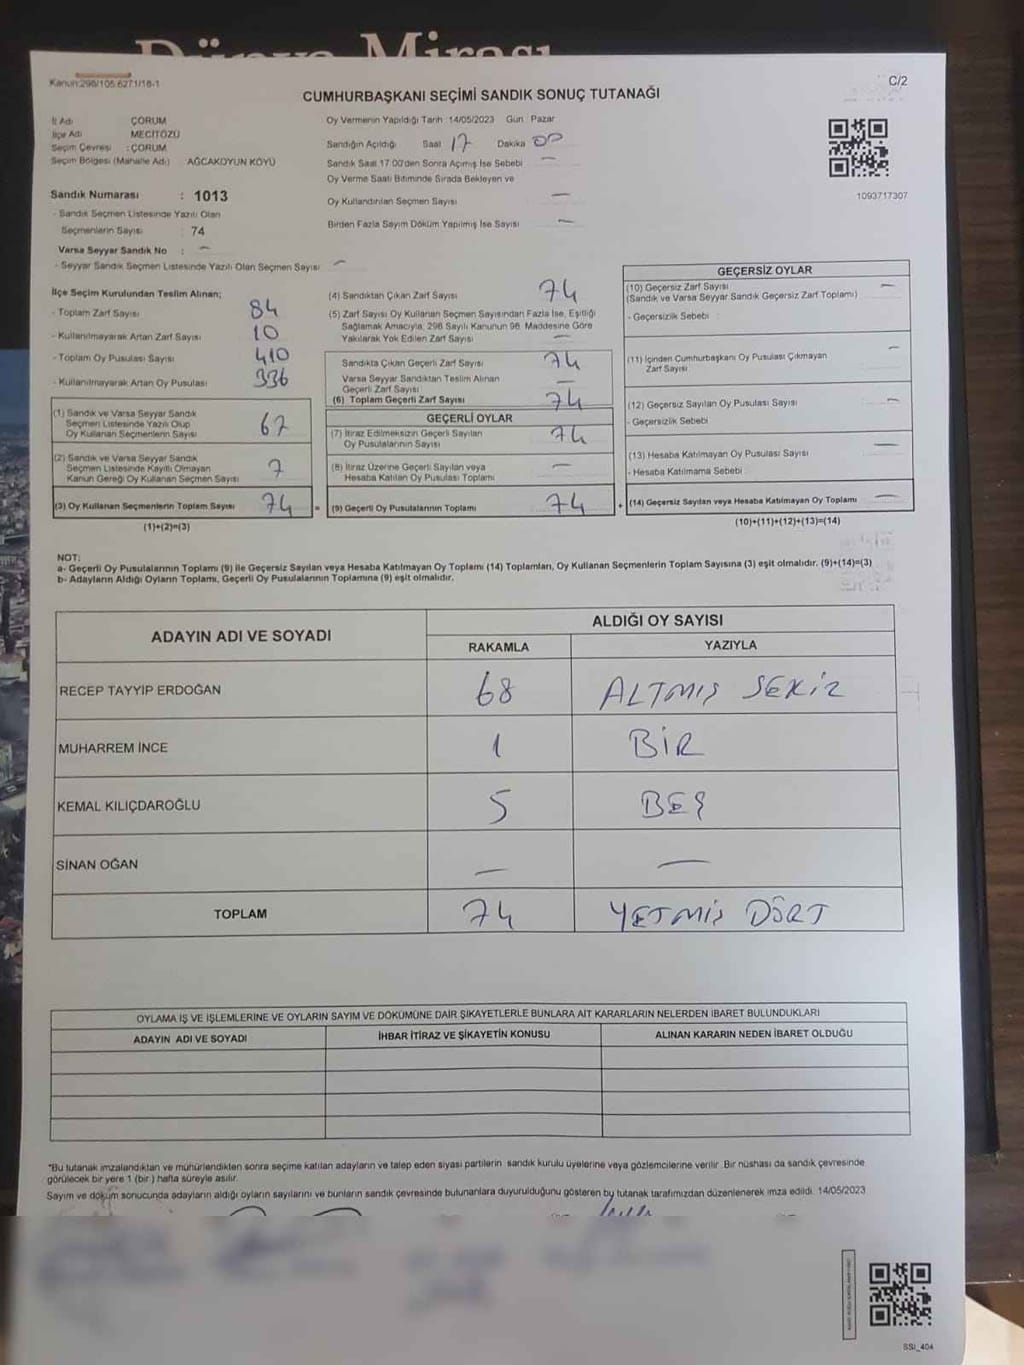 Dünya Mirası
Kanun:298/105.6271/18-1
C/2
CUMHURBAŞKANI SEÇİMİ SANDIK SONUÇ TUTANAĞI
İl Adı : ÇORUM
İlçe Adı : MECİTÖZÜ
Seçim Çevresi : ÇORUM
Seçim Bölgesi (Mahalle Adı) : AĞCAKOYUN KÖYÜ
Sandık Numarası : 1013
- Sandık Seçmen Listesinde Yazılı Olan
Seçmenlerin Sayısı : 74
Varsa Seyyar Sandık No : —
- Seyyar Sandık Seçmen Listesinde Yazılı Olan Seçmen Sayısı : —
Oy Vermenin Yapıldığı Tarih :14/05/2023 Gün : Pazar
Sandığın Açıldığı Saat 17 Dakika 00
Sandık Saat 17:00'den Sonra Açılmış İse Sebebi —
Oy Verme Saati Bitiminde Sırada Bekleyen ve
Oy Kullandırılan Seçmen Sayısı —
Birden Fazla Sayım Döküm Yapılmış İse Sayısı —
1093717307
İlçe Seçim Kurulundan Teslim Alınan;
- Toplam Zarf Sayısı 84
- Kullanılmayarak Artan Zarf Sayısı 10
- Toplam Oy Pusulası Sayısı 410
- Kullanılmayarak Artan Oy Pusulası 336
(1) Sandık ve Varsa Seyyar Sandık
Seçmen Listesinde Yazılı Olup
Oy Kullanan Seçmenlerin Sayısı 67
(2) Sandık ve Varsa Seyyar Sandık
Seçmen Listesinde Kayıtlı Olmayan
Kanun Gereği Oy Kullanan Seçmen Sayısı 7
(3) Oy Kullanan Seçmenlerin Toplam Sayısı 74 =
(1)+(2)=(3)
(4) Sandıktan Çıkan Zarf Sayısı 74
(5) Zarf Sayısı Oy Kullanan Seçmen Sayısından Fazla İse, Eşitliği
Sağlamak Amacıyla, 298 Sayılı Kanunun 98. Maddesine Göre
Yakılarak Yok Edilen Zarf Sayısı —
Sandıkta Çıkan Geçerli Zarf Sayısı 74
Varsa Seyyar Sandıktan Teslim Alınan
Geçerli Zarf Sayısı —
(6) Toplam Geçerli Zarf Sayısı 74
GEÇERLİ OYLAR
(7) İtiraz Edilmeksizin Geçerli Sayılan
Oy Pusulalarının Sayısı 74
(8) İtiraz Üzerine Geçerli Sayılan veya
Hesaba Katılan Oy Pusulası Toplamı —
(9) Geçerli Oy Pusulalarının Toplamı 74 +
GEÇERSİZ OYLAR
(10) Geçersiz Zarf Sayısı —
(Sandık ve Varsa Seyyar Sandık Geçersiz Zarf Toplamı)
- Geçersizlik Sebebi :
(11) İçinden Cumhurbaşkanı Oy Pusulası Çıkmayan —
Zarf Sayısı
(12) Geçersiz Sayılan Oy Pusulası Sayısı —
- Geçersizlik Sebebi
(13) Hesaba Katılmayan Oy Pusulası Sayısı —
- Hesaba Katılmama Sebebi
(14) Geçersiz Sayılan veya Hesaba Katılmayan Oy Toplamı —
(10)+(11)+(12)+(13)=(14)
NOT:
a- Geçerli Oy Pusulalarının Toplamı (9) ile Geçersiz Sayılan veya Hesaba Katılmayan Oy Toplamı (14) Toplamları, Oy Kullanan Seçmenlerin Toplam Sayısına (3) eşit olmalıdır. (9)+(14)=(3)
b- Adayların Aldığı Oyların Toplamı, Geçerli Oy Pusulalarının Toplamına (9) eşit olmalıdır.
ADAYIN ADI VE SOYADI
ALDIĞI OY SAYISI
RAKAMLA YAZIYLA
RECEP TAYYİP ERDOĞAN 68 ALTMIŞ SEKİZ
MUHARREM İNCE 1 BİR
KEMAL KILIÇDAROĞLU 5 BEŞ
SİNAN OĞAN — —
TOPLAM 74 YETMİŞ DÖRT
OYLAMA İŞ VE İŞLEMLERİNE VE OYLARIN SAYIM VE DÖKÜMÜNE DAİR ŞİKAYETLERLE BUNLARA AİT KARARLARIN NELERDEN İBARET BULUNDUKLARI
ADAYIN ADI VE SOYADI İHBAR İTİRAZ VE ŞİKAYETİN KONUSU ALINAN KARARIN NEDEN İBARET OLDUĞU
*Bu tutanak imzalandıktan ve mühürlendikten sonra seçime katılan adayların ve talep eden siyasi partilerin sandık kurulu üyelerine veya gözlemcilerine verilir. Bir nüshası da sandık çevresinde
görülecek bir yere 1 (bir) hafta süreyle asılır.
Sayım ve döküm sonucunda adayların aldığı oyların sayılarını ve bunların sandık çevresinde bulunanlara duyurulduğunu gösteren bu tutanak tarafımızdan düzenlenerek imza edildi. 14/05/2023
SSI_404